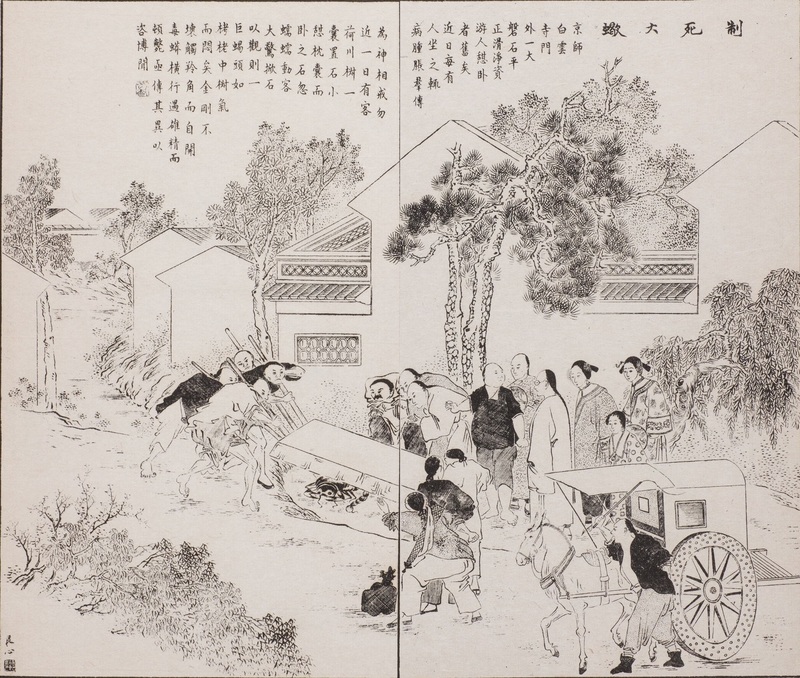 制死大蠍
京師
白雲
寺門
外一大
磐石平
正滑淨資
游人憇卧
者舊矣
近日每有
人坐之輒
病腫脹羣傳
為神相戒勿
近一日有客
荷川椒一
囊置石小
憇枕囊而
卧之石忽
蠕蠕動客
大驚掀石
以觀則一
巨蝎頭如
栲栳中椒氣
而閉矣金剛不
壞觸羚角而自開
毒蟒橫行遇雄精而
頓斃亟傳其異以
咨博聞
艮心